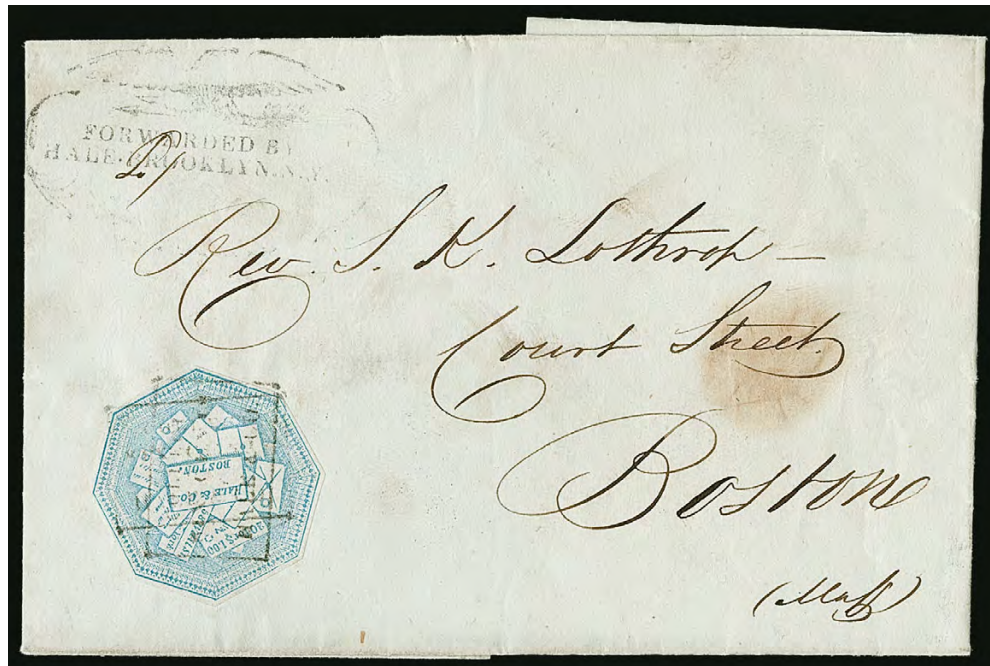 FORWARDED BY
HALE. BROOKLYN. N.Y.
Rev. S. K. Lothrop —
Court Street.
Boston
(Mass)
HALE & CO.
BOSTON.